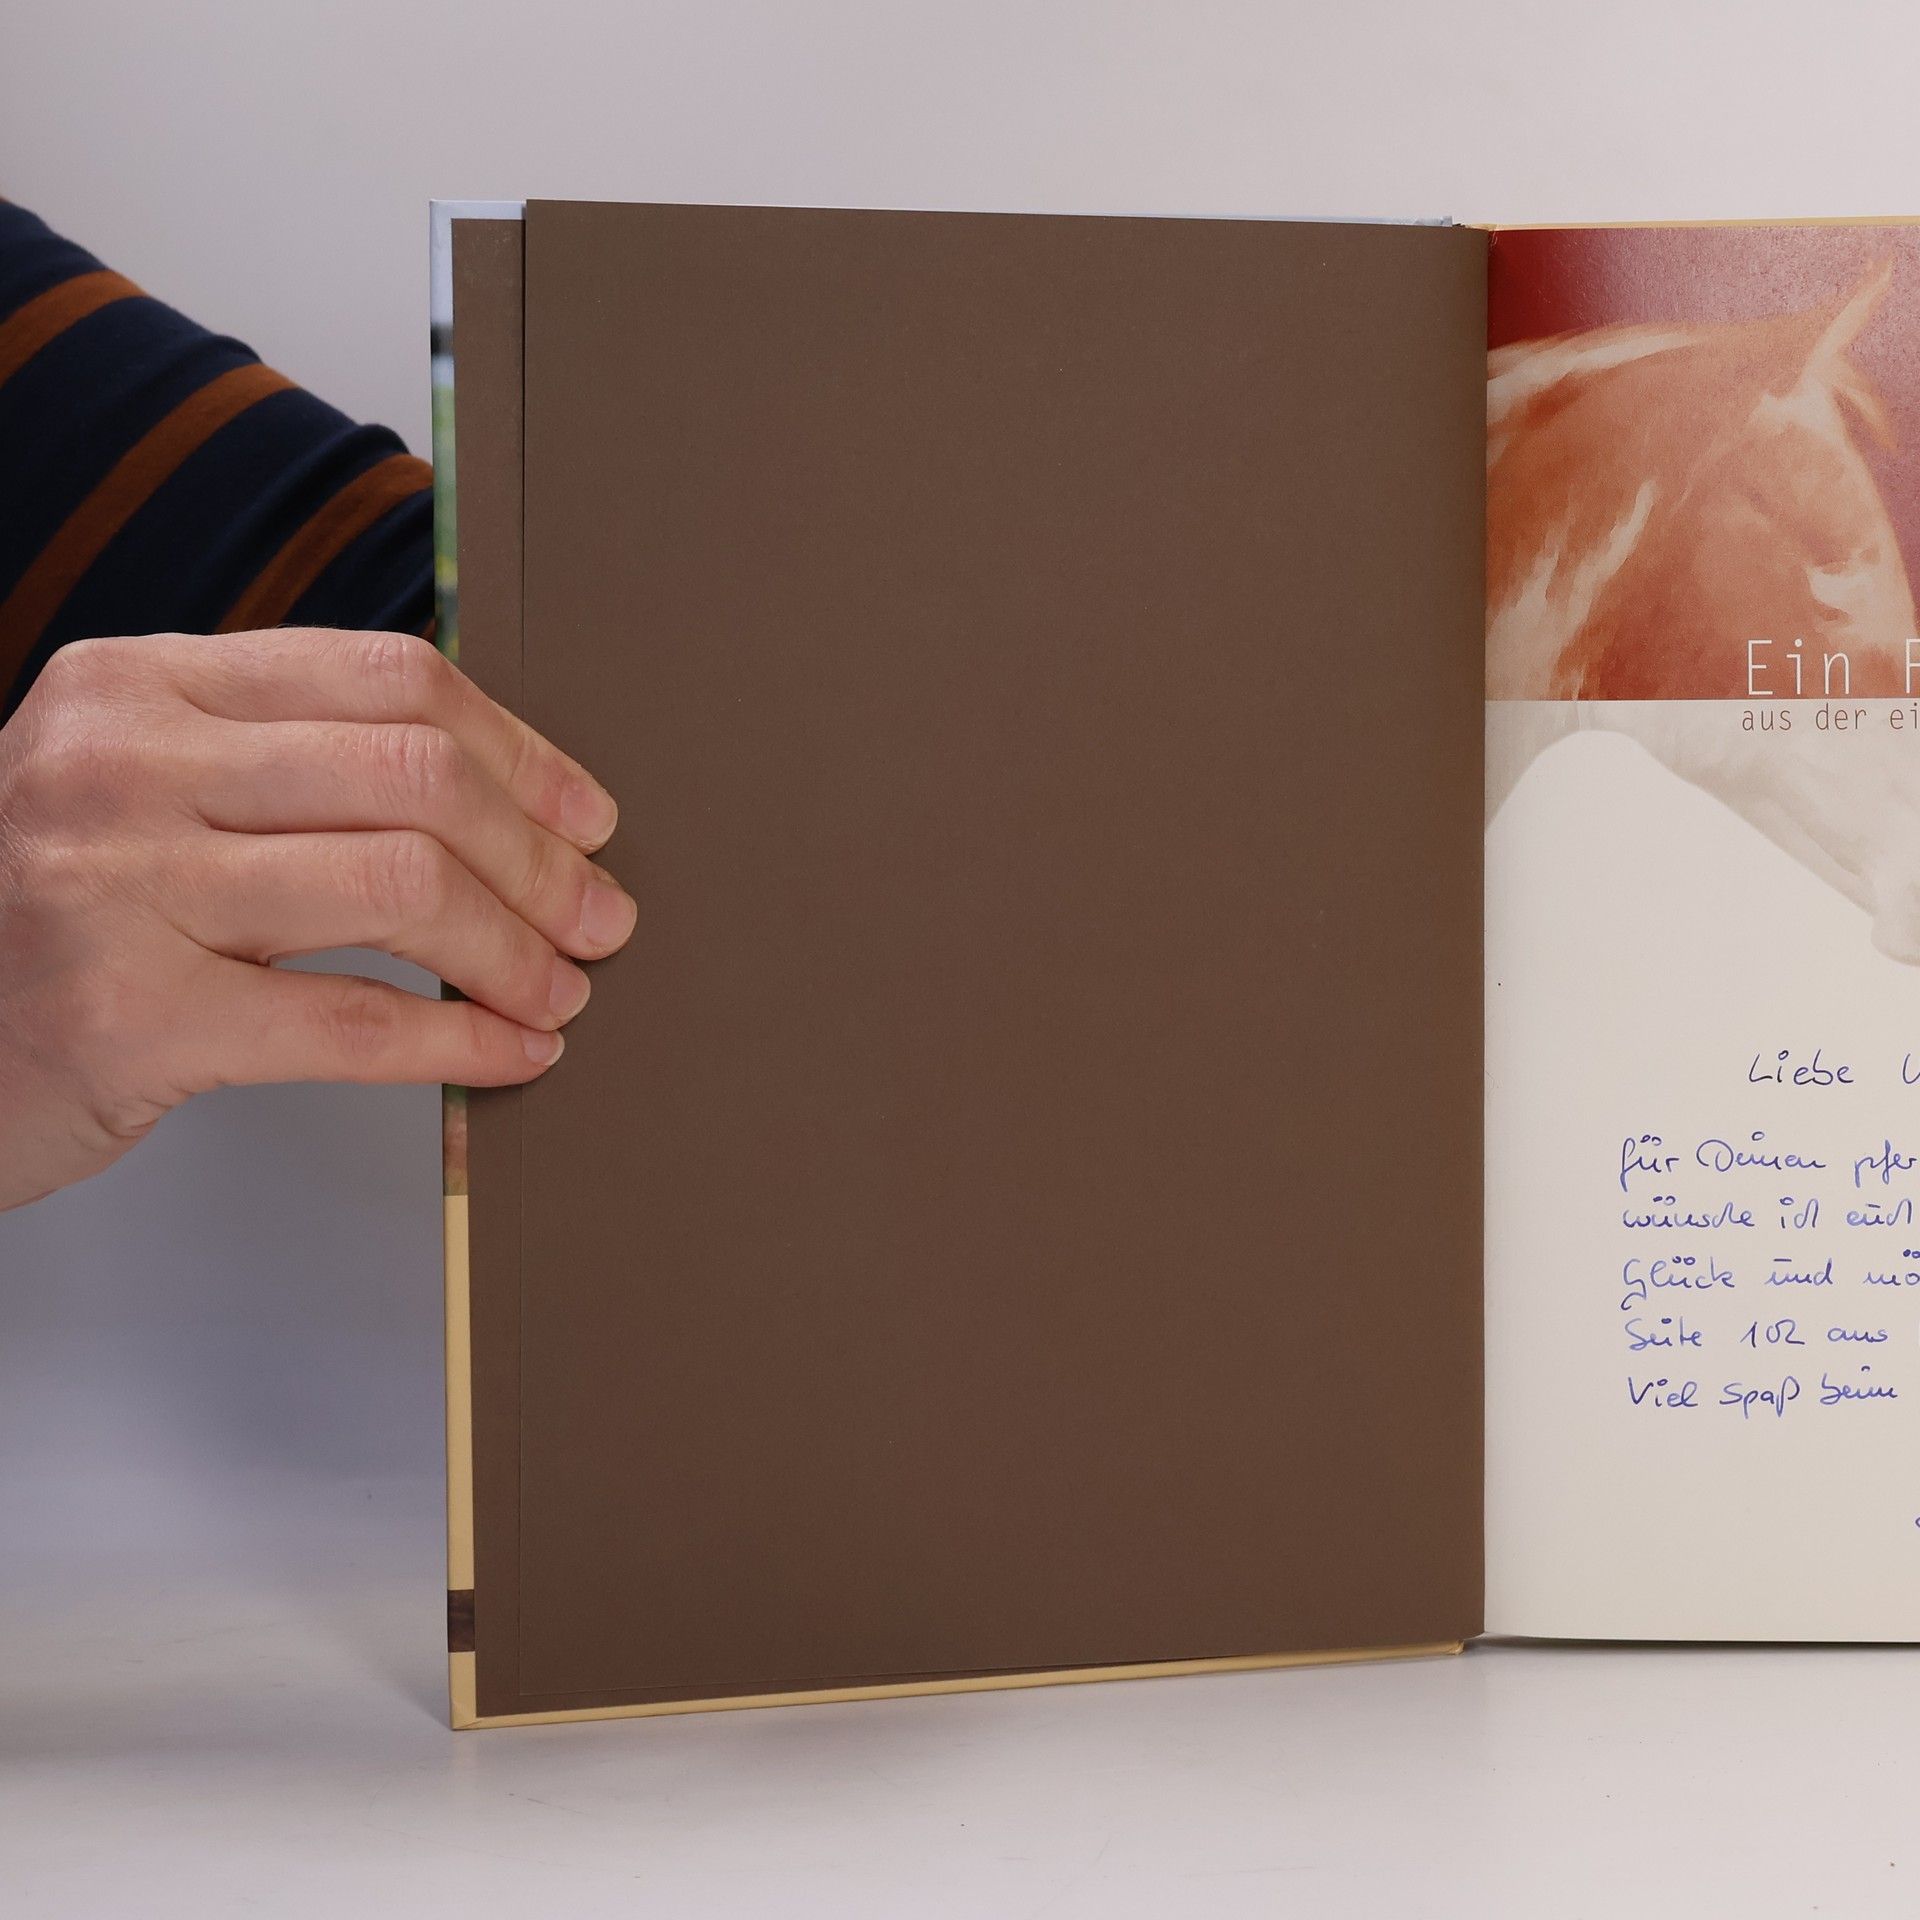 Ein F
aus der ei
Liebe
für Deinen pfer
wünsche ich euch
Glück und mö
Seite 102 aus
Viel Spaß beim